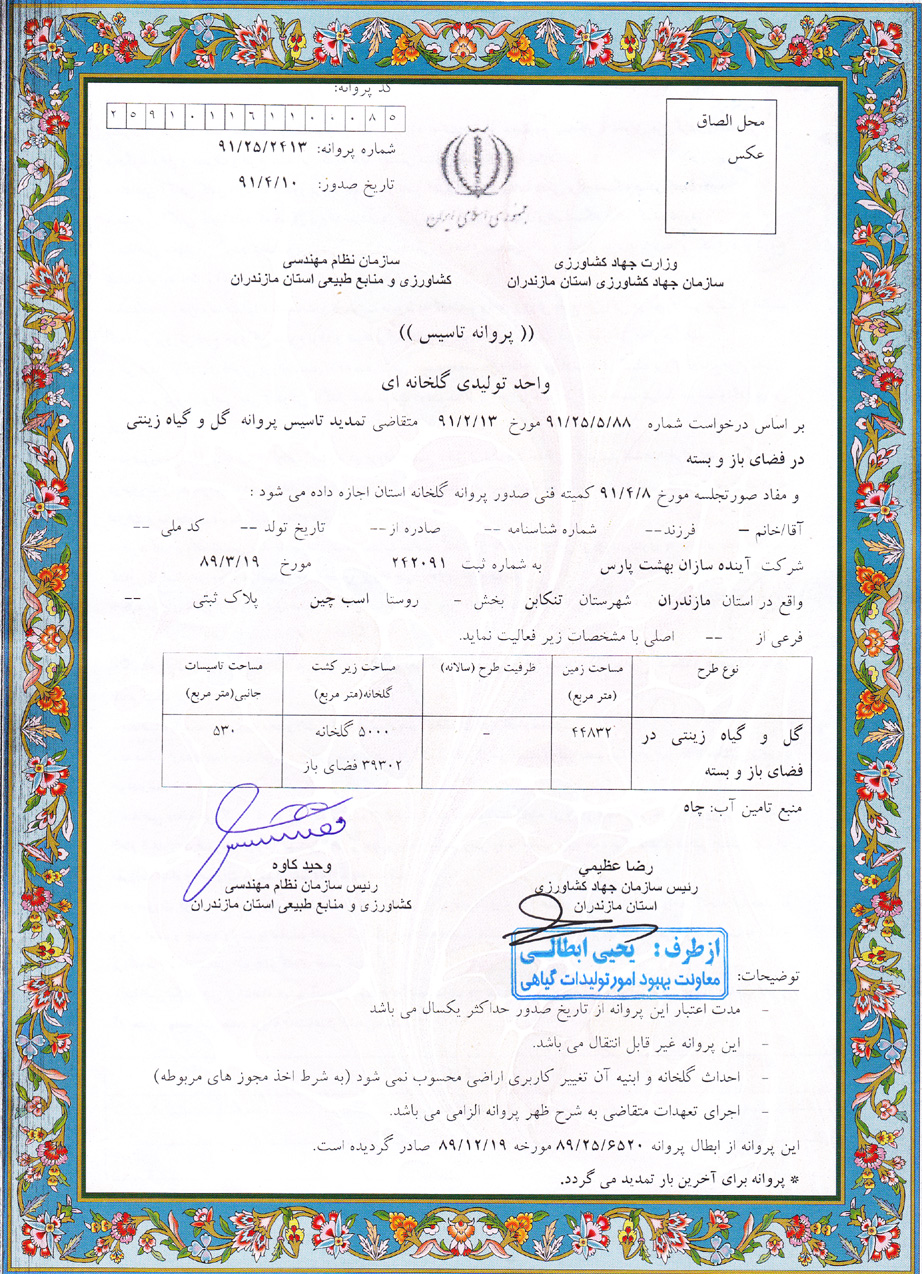 کد پروانه:
۲ ۵ ۹ ۱ ۰ ۱ ۱ ۶ ۱ ۱ ۰ ۰ ۰ ۸ ۵
شماره پروانه: ۹۱/۲۵/۲۴۱۳
تاریخ صدور: ۹۱/۴/۱۰
محل الصاق
عکس
جمهوری اسلامی ایران
وزارت جهاد کشاورزی
سازمان جهاد کشاورزی استان مازندران
سازمان نظام مهندسی
کشاورزی و منابع طبیعی استان مازندران
(( پروانه تاسیس ))
واحد تولیدی گلخانه ای
بر اساس درخواست شماره ۹۱/۲۵/۵/۸۸ مورخ ۹۱/۲/۱۳ متقاضی تمدید تاسیس پروانه گل و گیاه زینتی
در فضای باز و بسته
و مفاد صورتجلسه مورخ ۹۱/۴/۸ کمیته فنی صدور پروانه گلخانه استان اجازه داده می شود :
آقا/خانم – فرزند-- شماره شناسنامه -- صادره از-- تاریخ تولد -- کد ملی --
شرکت آینده سازان بهشت پارس به شماره ثبت ۲۴۲۰۹۱ مورخ ۸۹/۳/۱۹
واقع در استان مازندران شهرستان تنکابن بخش - روستا اسب چین پلاک ثبتی --
فرعی از -- اصلی با مشخصات زیر فعالیت نماید.
نوع طرح مساحت زمین (متر مربع) ظرفیت طرح (سالانه) مساحت زیر کشت گلخانه(متر مربع) مساحت تاسیسات جانبی(متر مربع)
گل و گیاه زینتی در فضای باز و بسته ۴۴۸۳۲ - ۵۰۰۰ گلخانه ۳۹۳۰۲ فضای باز ۵۳۰
منبع تامین آب: چاه
رضا عظیمی
رئیس سازمان جهاد کشاورزی
استان مازندران
وحید کاوه
رئیس سازمان نظام مهندسی
کشاورزی و منابع طبیعی استان مازندران
از طرف : یحیی ابطالی
معاونت بهبود امور تولیدات گیاهی
توضیحات:
- مدت اعتبار این پروانه از تاریخ صدور حداکثر یکسال می باشد
- این پروانه غیر قابل انتقال می باشد.
- احداث گلخانه و ابنیه آن تغییر کاربری اراضی محسوب نمی شود (به شرط اخذ مجوز های مربوطه)
- اجرای تعهدات متقاضی به شرح ظهر پروانه الزامی می باشد.
این پروانه از ابطال پروانه ۸۹/۲۵/۶۵۲۰ مورخه ۸۹/۱۲/۱۹ صادر گردیده است.
* پروانه برای آخرین بار تمدید می گردد.